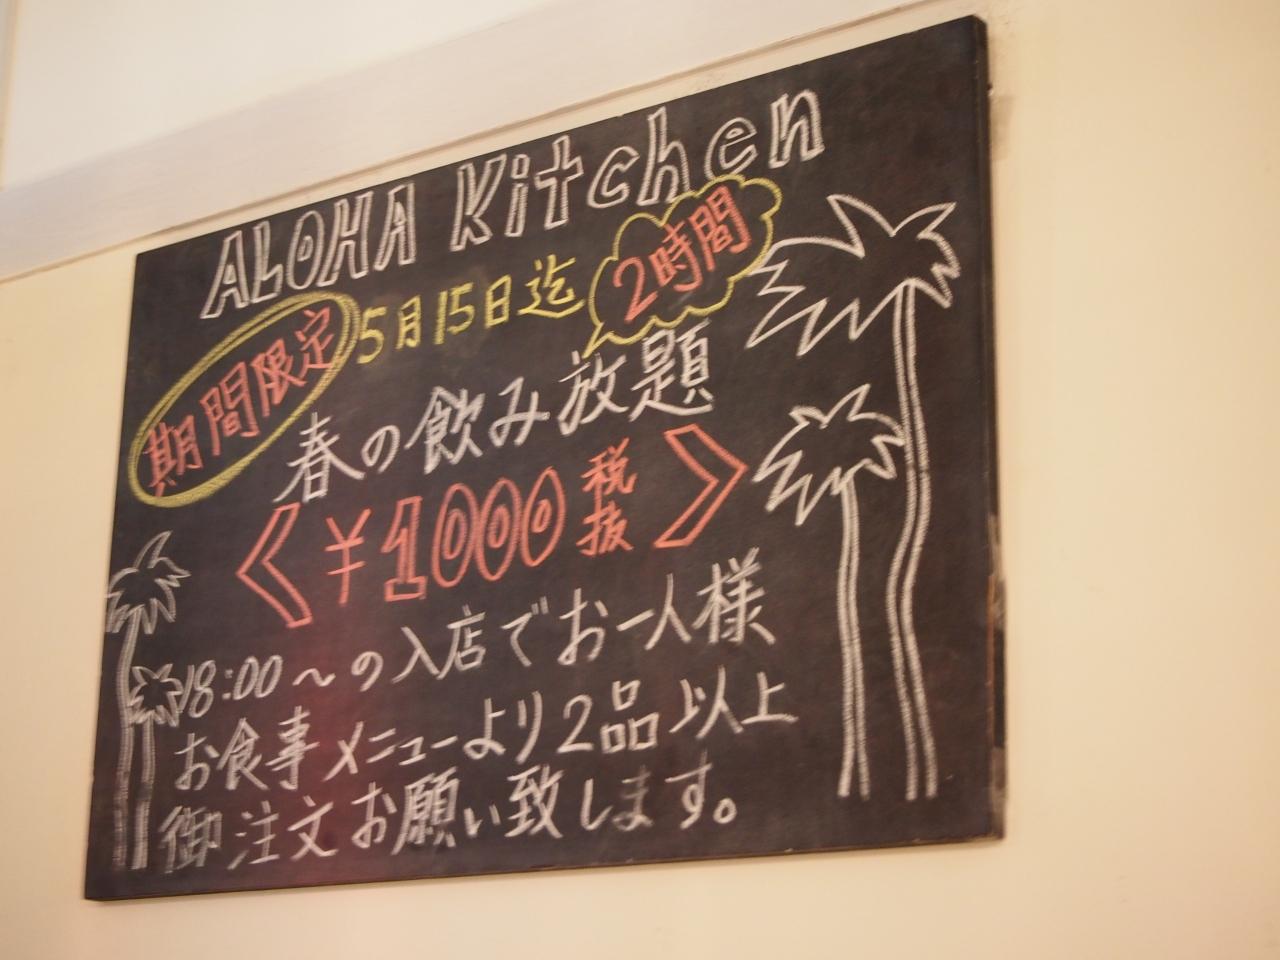 ALOHA Kitchen
期間限定 5月15日迄 2時間
春の飲み放題
《¥1000 税抜》
18:00〜の入店でお一人様
お食事メニューより2品以上
御注文お願い致します。